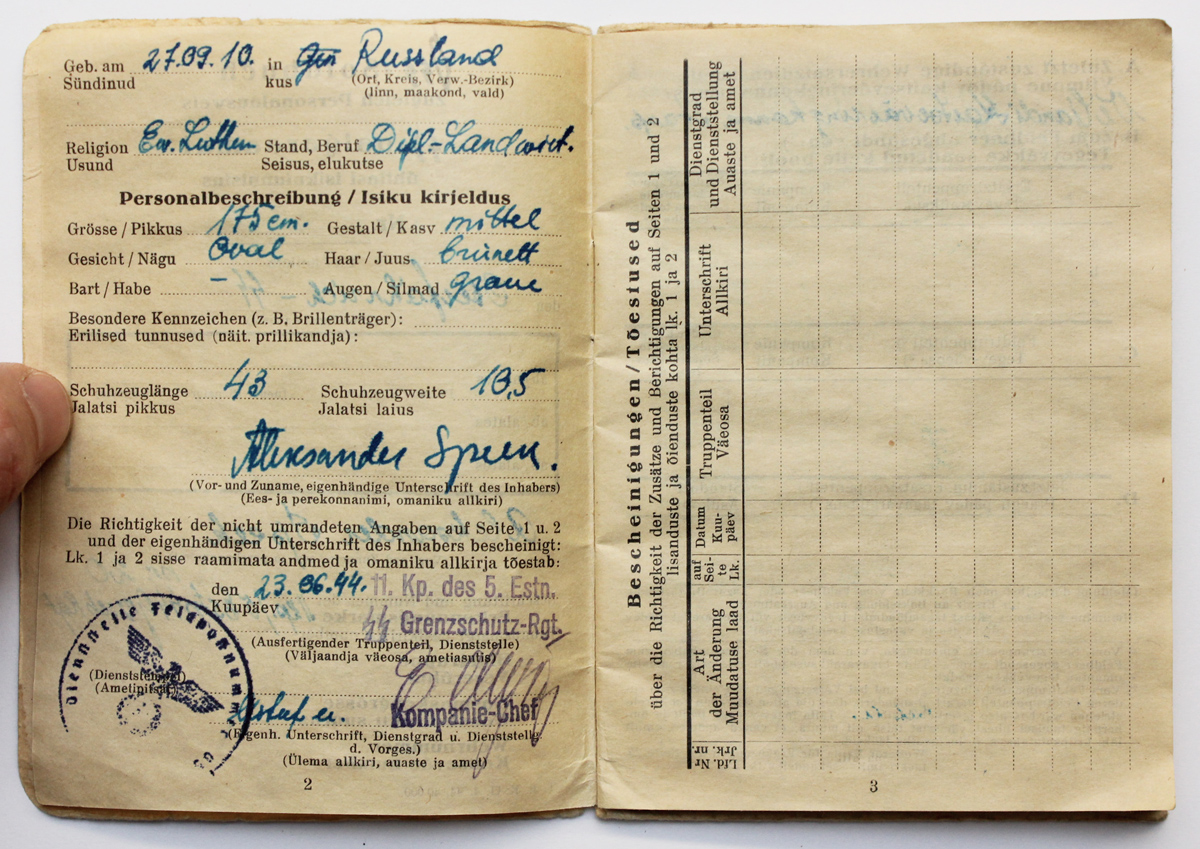 Geb. am 27.09.10. in Russland
Sündinud kus (Ort, Kreis, Verw.-Bezirk)
(linn, maakond, vald)
Religion Ev. Luthen Stand, Beruf Dipl-Landwirt.
Usund Seisus, elukutse
Personalbeschreibung / Isiku kirjeldus
Grösse / Pikkus 175 cm. Gestalt / Kasv mittel
Gesicht / Nägu Oval Haar / Juus brünett
Bart / Habe - Augen / Silmad graue
Besondere Kennzeichen (z. B. Brillenträger):
Erilised tunnused (näit. prillikandja):
Schuhzeuglänge 43 Schuhzeugweite 10,5
Jalatsi pikkus Jalatsi laius
Aleksander
(Vor- und Zuname, eigenhändige Unterschrift des Inhabers)
(Ees- ja perekonnanimi, omaniku allkiri)
Die Richtigkeit der nicht umrandeten Angaben auf Seite 1 u. 2
und der eigenhändigen Unterschrift des Inhabers bescheinigt:
Lk. 1 ja 2 sisse raamimata andmed ja omaniku allkirja tõestab:
den 23.06.44. 11. Kp. des 5. Estn.
Kuupäev
Grenzschutz-Rgt.
(Ausfertigender Truppenteil, Dienststelle)
(Väljaandja väeosa, ametiasutis)
Dienststelle Feldpostnummer
(Dienststempel)
(Ametipitsat)
Kompanie-Chef
(Eigenh. Unterschrift, Dienstgrad u. Dienststellg.
d. Vorges.)
(Ülema allkiri, auaste ja amet)
2
Bescheinigungen / Tõesiused
über die Richtigkeit der Zusätze und Berichtigungen auf Seiten 1 und 2
lisanduste ja õienduste kohta lk. 1 ja 2
Lfd. Nr
Jrk. nr.
Art
der Änderung
Muudatuse laad
auf
Sei-
te
Lk.
Datum
Kuu-
päev
Truppenteil
Väeosa
Unterschrift
Allkiri
Dienstgrad
und Dienststellung
Auaste ja amet
3